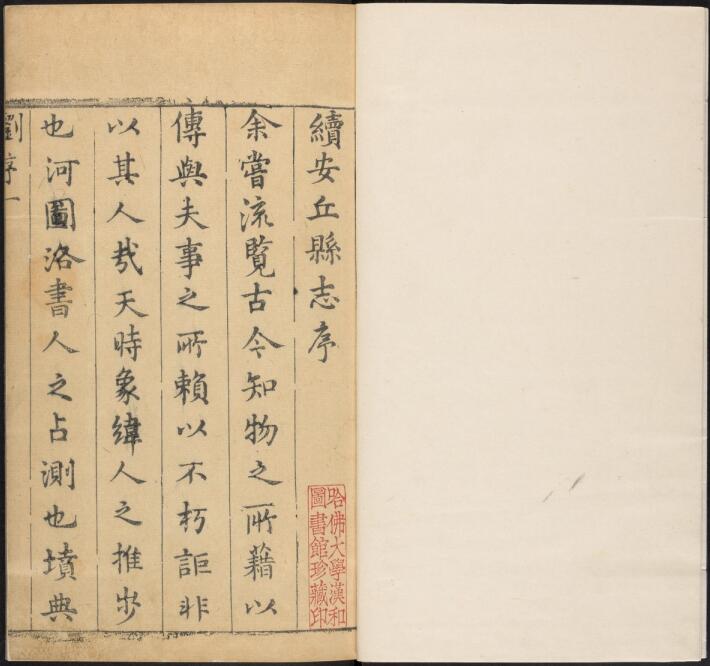 續安丘縣志序
余嘗流覧古今知物之所藉以
傳與夫事之所頼以不朽詎非
以其人㢤天時象緯人之推步
也河圖洛書人之占測也墳典
劉序一
哈佛大學漢和
圖書館珍藏印